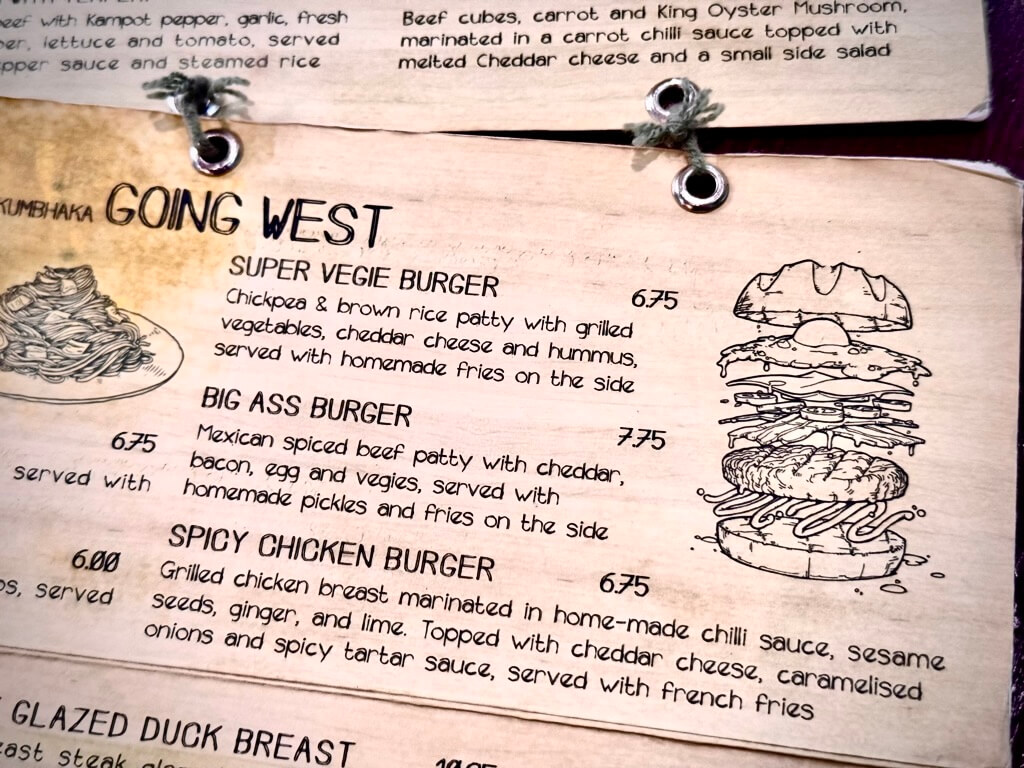 with Kampot pepper, garlic, fresh
lettuce and tomato, served
sauce and steamed rice
Beef cubes, carrot and King Oyster Mushroom,
marinated in a carrot chilli sauce topped with
melted Cheddar cheese and a small side salad
KUMBHAKA GOING WEST
SUPER VEGIE BURGER
6.75
Chickpea & brown rice patty with grilled
vegetables, cheddar cheese and hummus,
served with homemade fries on the side
BIG ASS BURGER
7.75
Mexican spiced beef patty with cheddar,
bacon, egg and vegies, served with
homemade pickles and fries on the side
SPICY CHICKEN BURGER
6.75
Grilled chicken breast marinated in home-made chilli sauce, sesame
seeds, ginger, and lime. Topped with cheddar cheese, caramelised
onions and spicy tartar sauce, served with french fries
6.75
served with
6.00
served
GLAZED DUCK BREAST
steak